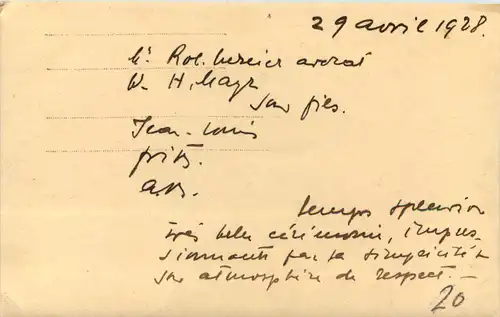 29 avril 1928.
Mr Rob. Mercier avocat
W. H. Mayr
son fils.
Jean-Louis
Fritz.
A.B.
temps splendide
très belle cérémonie, impres-
sionnante par sa simplicité &
son atmosphère de respect. —
20